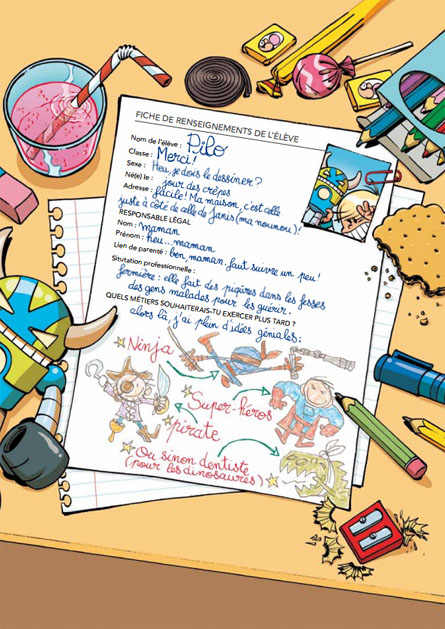 FICHE DE RENSEIGNEMENTS DE L'ÉLÈVE
Nom de l'élève : Pilo
Classe : Merci !
Sexe : Heu, je dois le dessiner ?
Né(e) le : jour des crêpes
Adresse : facile ! Ma maison, c'est celle
juste à côté de celle de Janis (ma nounou) !
RESPONSABLE LÉGAL
Nom : maman
Prénom : heu... maman
Lien de parenté : bon, maman, faut suivre un peu !
Situtation professionnelle :
fermière : elle fait des pugères dans les fesses
des gens malades pour les guérir.
QUELS MÉTIERS SOUHAITERAIS-TU EXERCER PLUS TARD ?
alors là, j'ai plein d'idées géniales :
Ninja
Super-héros
pirate
Ou sinon dentiste
(pour les dinosaures)